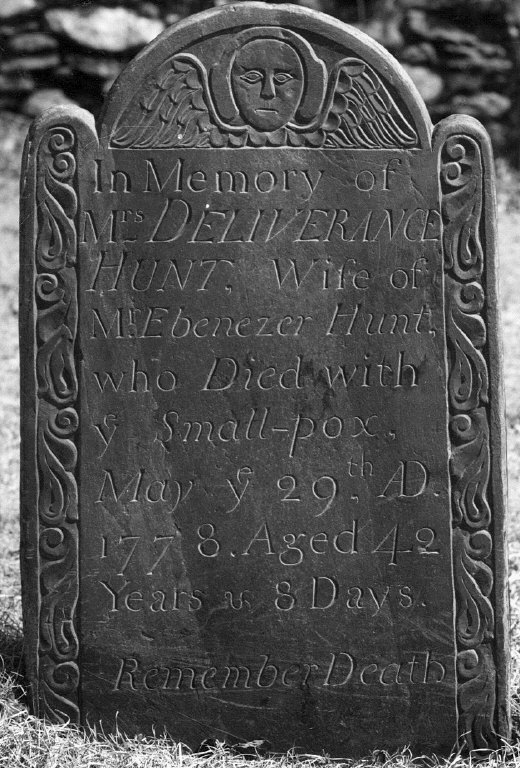 In Memory of
Mrs DELIVERANCE
HUNT, Wife of
Mr Ebenezer Hunt,
who Died with
yͤ Small-pox,
May yͤ 29th, AD.
1778. Aged 42
Years & 8 Days.
Remember Death